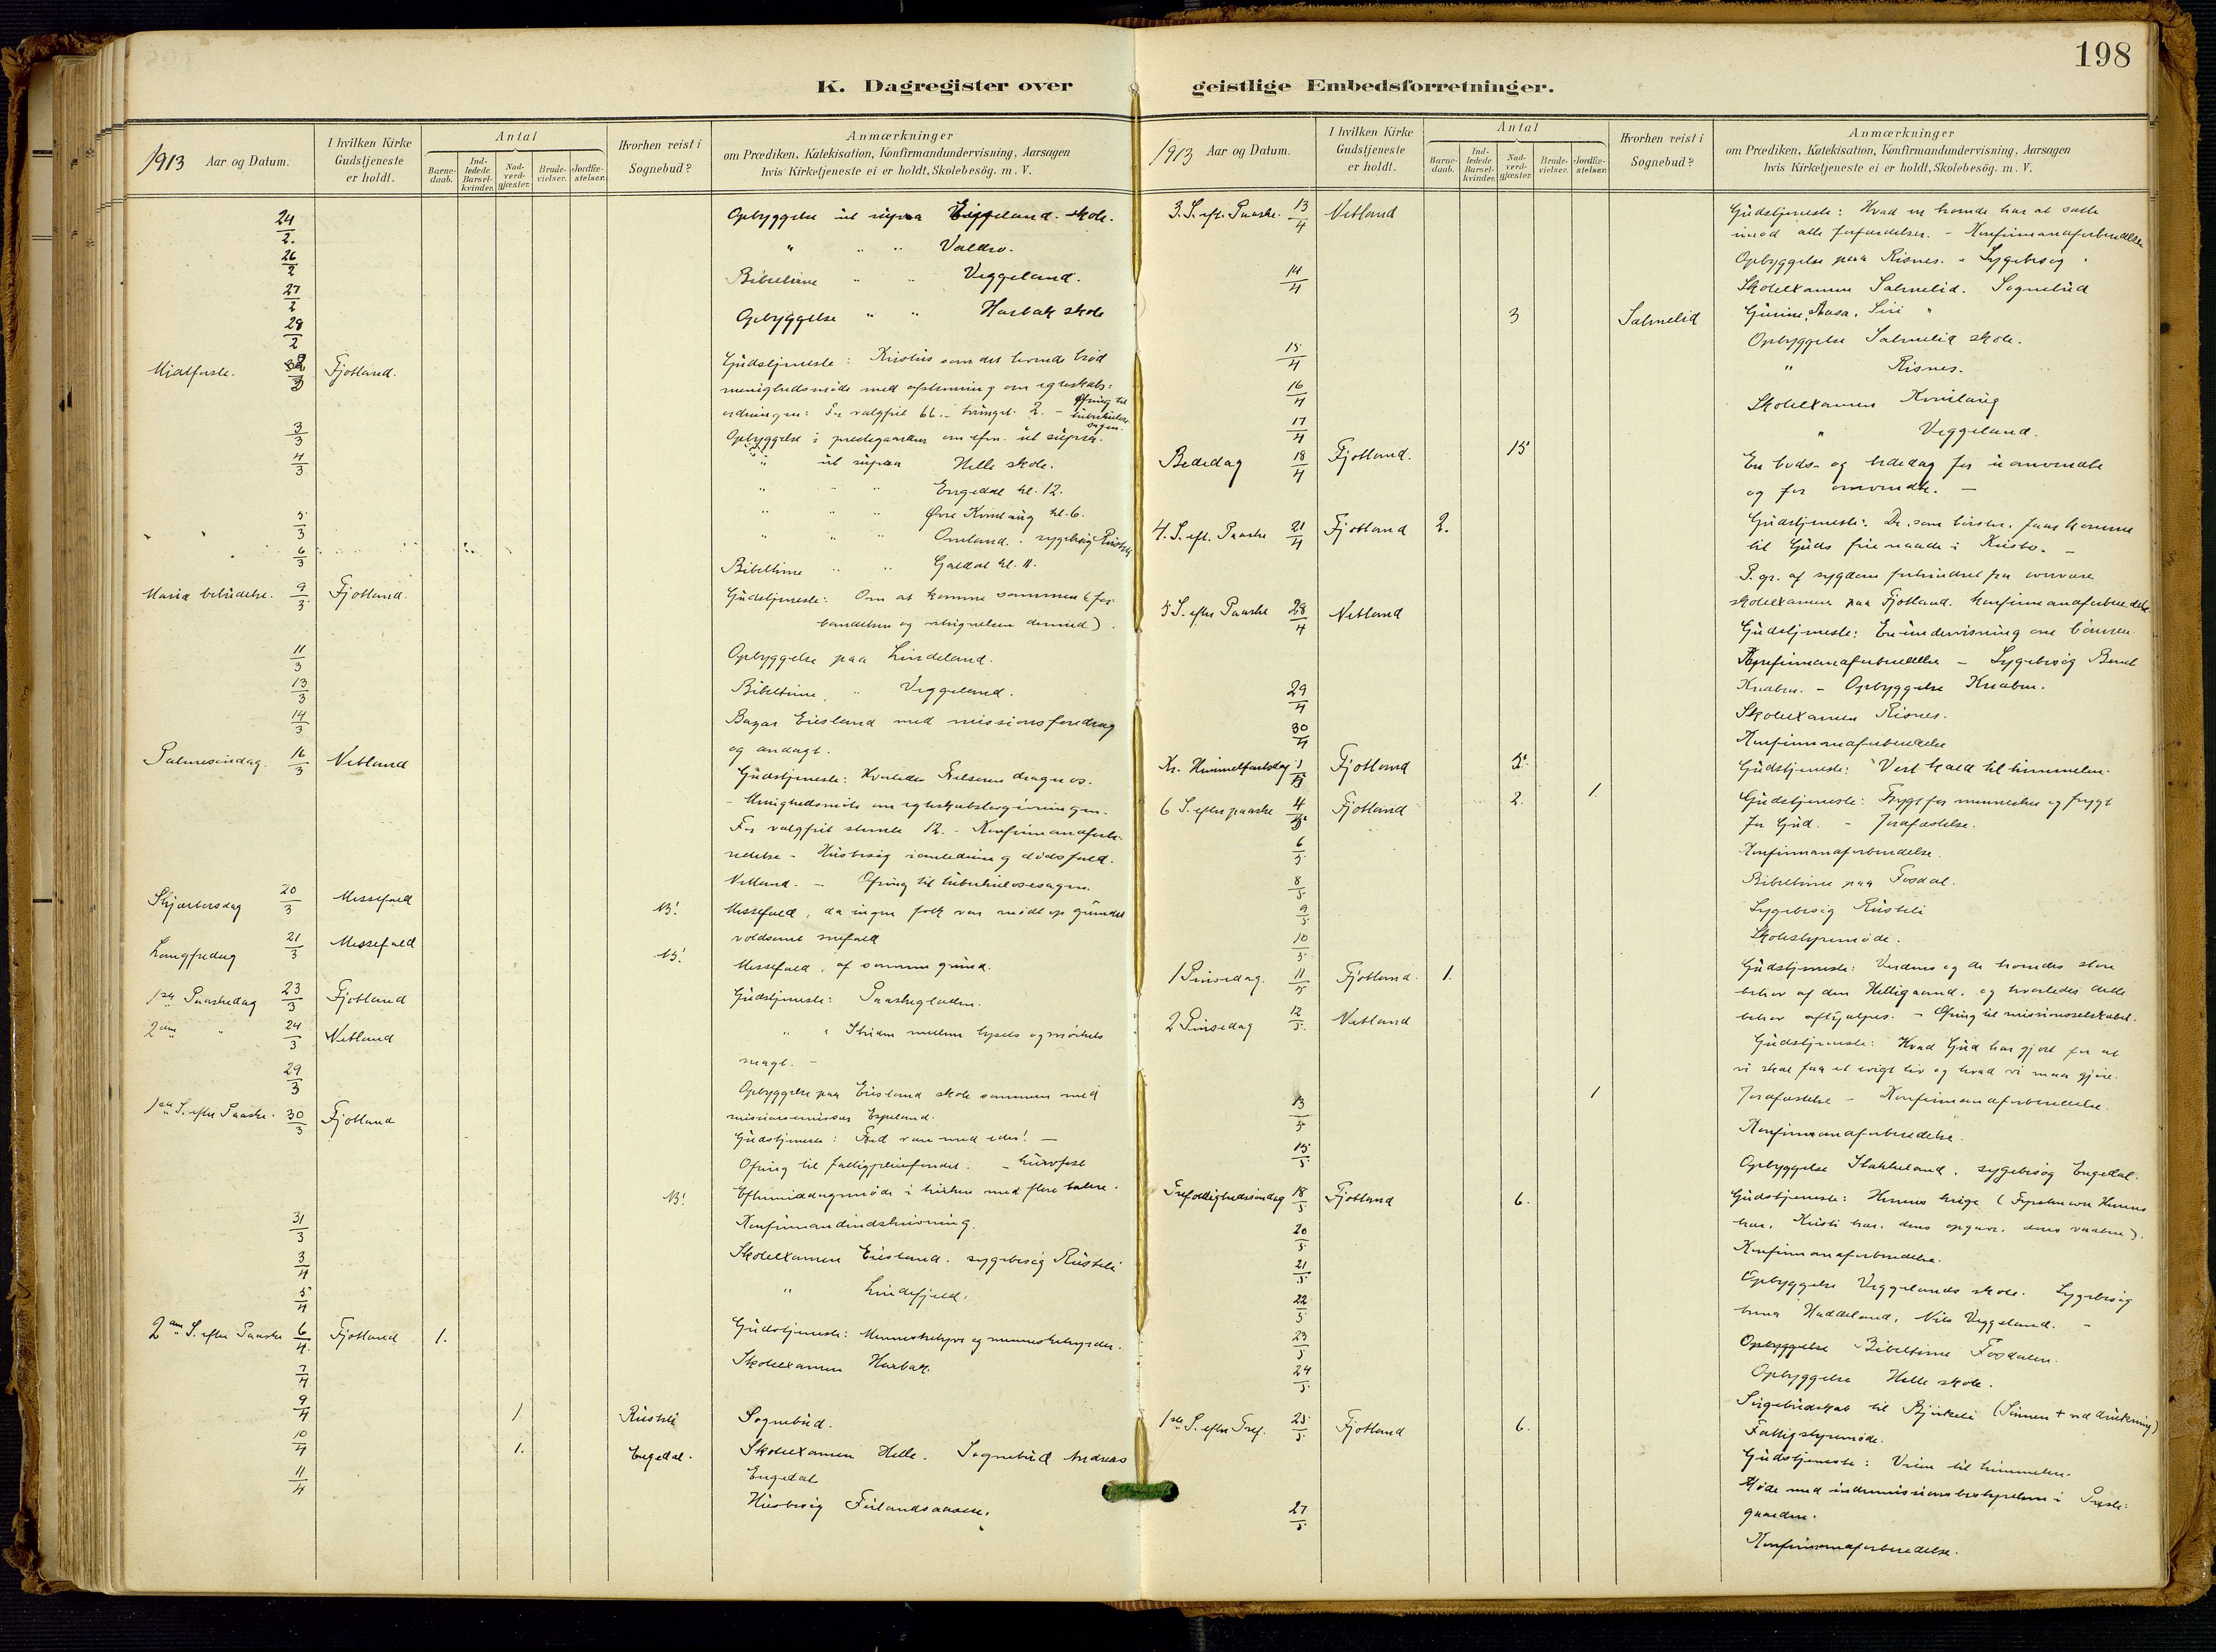 198
K. Dagregister over geistlige Embedsforretninger.
1913 Aar og Datum.
I hvilken Kirke Gudstjeneste er holdt.
Antal
Barne-daab.
Ind-ledede Barsel-kvinder.
Nad-verd-gjæster.
Brude-vielser.
Jordfæ-stelser.
Hvorhen reist i Sognebud?
Anmærkninger
om Prædiken, Katekisation, Konfirmandundervisning, Aarsagen
hvis Kirketjeneste ei er holdt, Skolebesög. m. V.
24/2. Opbyggelse ut supra Eiggeland skole.
26/2 " " " Valdro.
27/2 Bibeltime " " Veggeland.
28/2 Opbyggelse " " Harbak skole
Midtfaste. Fjotland. Gudstjeneste: Kristus som det levende brød
menighedsmøde med afstemning om egteskabs:
ordningen: For valgfrit 66. tvunget 2. - Ofring til
3/3 Opbyggelse i prestegaarden om efm. ut supra.
4/3 " ut supra Helle skole.
" " " Engedal kl. 12.
" " " Øvre Kvinlaug kl. 6.
5/3 " " " Omland. sygebesøg Rustli
6/3 Bibeltime " " Galdal kl. 11.
Maria bebudelse. 9/3 Fjotland. Gudstjeneste: Om at komme sammen (for-
bandelsen og velsignelsen dermed).
11/3 Opbyggelse paa Lindeland.
13/3 Bibeltime " Veggeland.
14/3 Bazar Eiesland med missionsforedrag
og andagt.
Palmesøndag. 16/3 Netland Gudstjeneste: Hvorledes Frelseren drager os.
- Menighedsmøte om egteskabslovgivningen.
For valgfrit stemte 12. - Konfirmandforbe-
redelse - Husbesøg i anledning dødsfald.
Netland. - Ofring til tuberkulosesagen.
Skjærtorsdag 20/3 Messefald NB! Messefald, da ingen folk var mødt op grundet
voldsomt snefald
Langfredag 21/3 Messefald NB! Messefald, af samme grund.
1ste Paaskedag 23/3 Fjotland Gudstjeneste: Paaskeglæden.
2den " 24/3 Netland " " Striden mellem lysets og mørkets
magt. -
29/3 Opbyggelse paa Eiesland skole sammen med
missionsemissær Espeland.
1ste S. efter Paaske. 30/3 Fjotland Gudstjeneste: Fred være med eder! -
Ofring til fattigpleiefondet.
NB! Eftermiddagsmøde i kirken med flere talere.
31/3 Konfirmandindskrivning.
3/4 Skoleexamen Eiesland. sygebesøg Rustli
5/4 " Lindefjeld.
2den S. efter Paaske 6/4. Fjotland 1. Gudstjeneste: Menneskehyre og menneskehyrder.
7/4 Skoleexamen Harbak.
9/4 1 Rustli Sognebud.
10/4 1. Engedal. Skoleexamen Helle. Sognebud Andreas
Engedal
11/4 Husbesøg Feilandsaasen.
1913 Aar og Datum.
I hvilken Kirke Gudstjeneste er holdt.
Antal
Barne-daab.
Ind-ledede Barsel-kvinder.
Nad-verd-gjæster.
Brude-vielser.
Jordfæ-stelser.
Hvorhen reist i Sognebud?
Anmærkninger
om Prædiken, Katekisation, Konfirmandundervisning, Aarsagen
hvis Kirketjeneste ei er holdt, Skolebesög. m. V.
3. S. eft. Paaske. 13/4 Netland Gudstjeneste: Hvad en kristen har at sætte
imod alle forfærdelser. - Konfirmandforberedelse
Opbyggelse paa Risnes. - Sygebesøg.
14/4 Skoleexamen Salmelid. Sognebud
3 Salmelid Gurine, Aasa, Siri "
15/4 Opbyggelse Salmelid skole.
" Risnes.
16/4 Skoleexamen Kvinlaug
17/4 " Veggeland.
Bededag 18/4 Fjotland. 15 En bods- og bededag for uomvendte
og for omvendte. -
4. S. eft. Paaske 21/4 Fjotland 2. Gudstjeneste: De, som tørster, faar komme
til Guds frie naade i Kristo. -
P. gr. af sygdom forhindret fra overvære
skoleexamen paa Fjotland. konfirmandforberedelse.
5 S. efter Paaske 28/4 Netland Gudstjeneste: En undervisning om bønnen.
Konfirmandforberedelse - Sygebesøg Berent
Knaben. - Opbyggelse Knaben.
29/4 Skoleexamen Risnes.
30/4 Konfirmandforberedelse
Kr. Himmelfartsdag 1/5 Fjotland Gudstjeneste: Vort kald til himmelen.
6 S. efter paaske 4/5 Fjotland 2. 1 Gudstjeneste: Frygt for mennesker og frygt
for Gud. - Jordfæstelse.
6/5 Konfirmandforberedelse.
8/5 Bibeltime paa Fosdal.
9/5 Sygebesøg Rustli
10/5 Skolestyremøde.
1 Pinsedag. 11/5 Fjotland. 1. Gudstjeneste: Verdens og de troendes store
behov af den Helligaand, og hvorledes dette
behov afhjælpes. - Ofring til missionsselskabet.
2 Pinsedag 12/5. Netland Gudstjeneste: Hvad Gud har gjort for at
vi skal faa et evigt liv og hvad vi maa gjøre.
1 Jordfæstelse - Konfirmandforberedelse.
13/5 Konfirmandforberedelse.
15/5. Opbyggelse Stakkeland. sygebesøg Engedal.
Trefoldighedssøndag 18/5 Fjotland 6. Gudstjeneste: Herrens krige
20/5. Konfirmandforberedelse.
21/5. Opbyggelse Veggelands skole. Sygebesøg
Haddeland, Nils Veggeland. -
22/5 Opbyggelse Bibeltime Fosdalen.
23/5 Opbyggelse Helle skole.
24/5. Sørgebudskab til Bjørkeli
Fattigstyremøde.
1ste S. efter Tref. 25/5. Fjotland 6. Gudstjeneste: Veien til himmelen.
Møde med indremissionsbestyrelsen i Præste-
gaarden.
27/5. Konfirmandforberedelse.